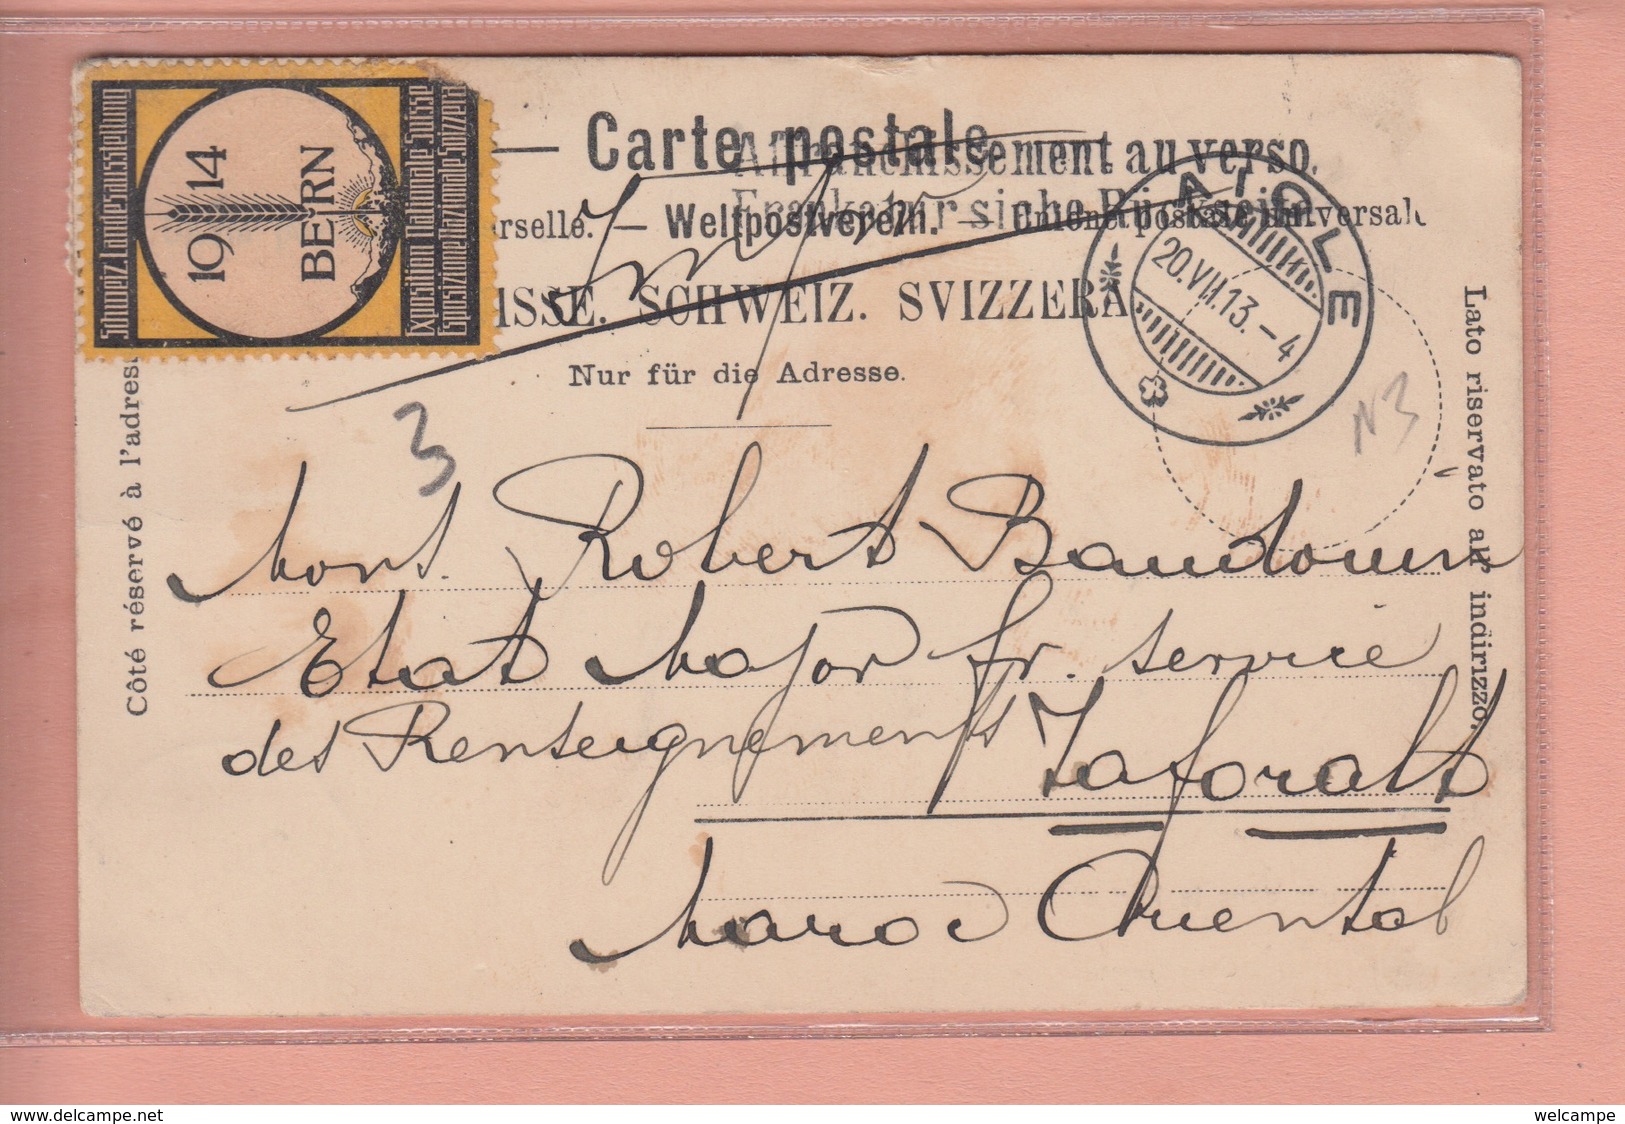 Carte postale
Affranchissement au verso.
Frankatur siehe Rückseite
rselle. — Weltpostverein. — Unione postale universale
ISSE. SCHWEIZ. SVIZZERA
Nur für die Adresse.
Schweiz. Landesausstellung
1914
BERN
Exposition Nationale Suisse
Esposizione Nazionale Svizzera
AIGLE
20.VII.13.-4
N3
3
Côté réservé à l'adresse
Lato riservato all' indirizzo.
Mons. Robert Baudouin
Etat Major fr. service
des Renseignements
Taforalt
Maroc Oriental
www.delcampe.net
welcampe